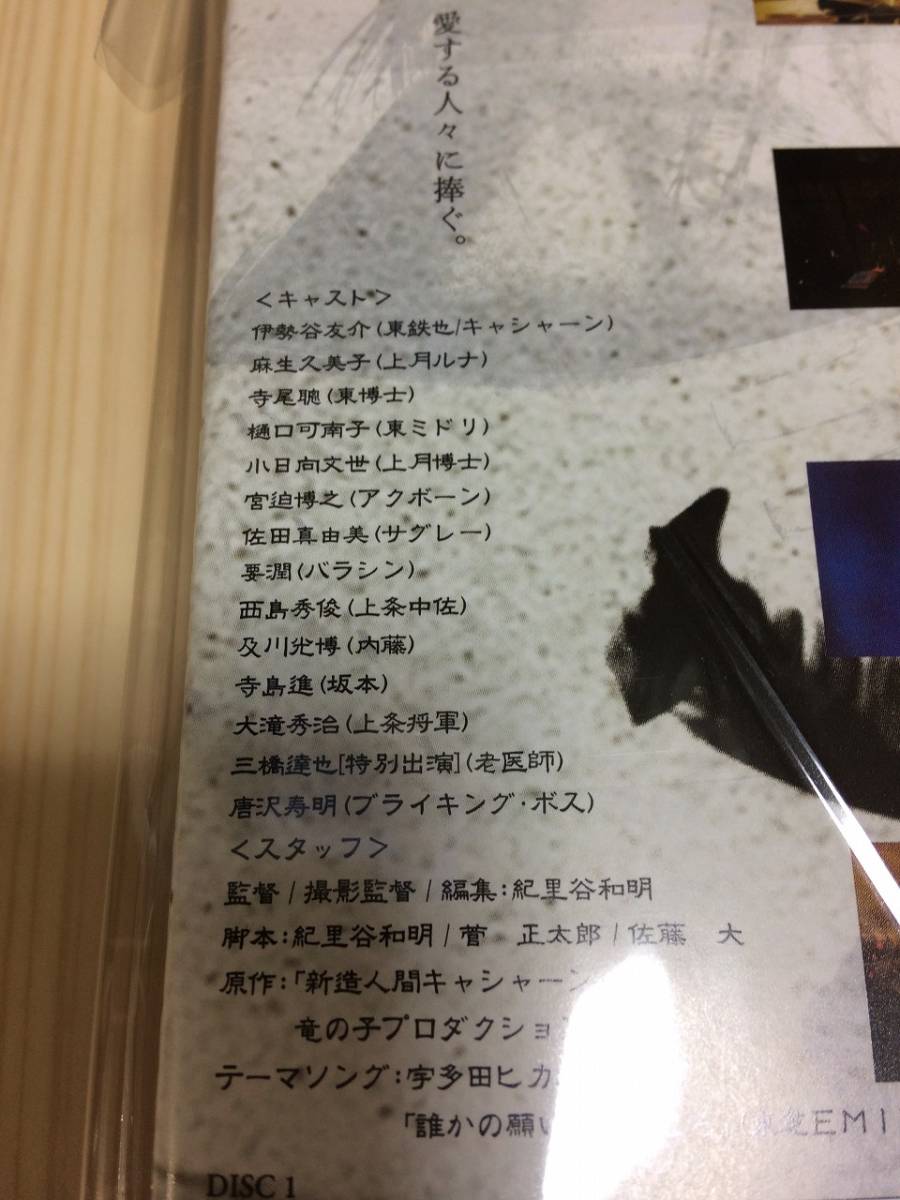 愛する人々に捧ぐ。
<キャスト>
伊勢谷友介(東鉄也/キャシャーン)
麻生久美子(上月ルナ)
寺尾聰(東博士)
樋口可南子(東ミドリ)
小日向文世(上月博士)
宮迫博之(アクボーン)
佐田真由美(サグレー)
要潤(バラシン)
西島秀俊(上条中佐)
及川光博(内藤)
寺島進(坂本)
大滝秀治(上条将軍)
三橋達也[特別出演](老医師)
唐沢寿明(ブライキング・ボス)
<スタッフ>
監督/撮影監督/編集:紀里谷和明
脚本:紀里谷和明/菅 正太郎/佐藤 大
原作:「新造人間キャシャーン
竜の子プロダクショ
テーマソング:宇多田ヒカ
「誰かの願い EMI
DISC 1